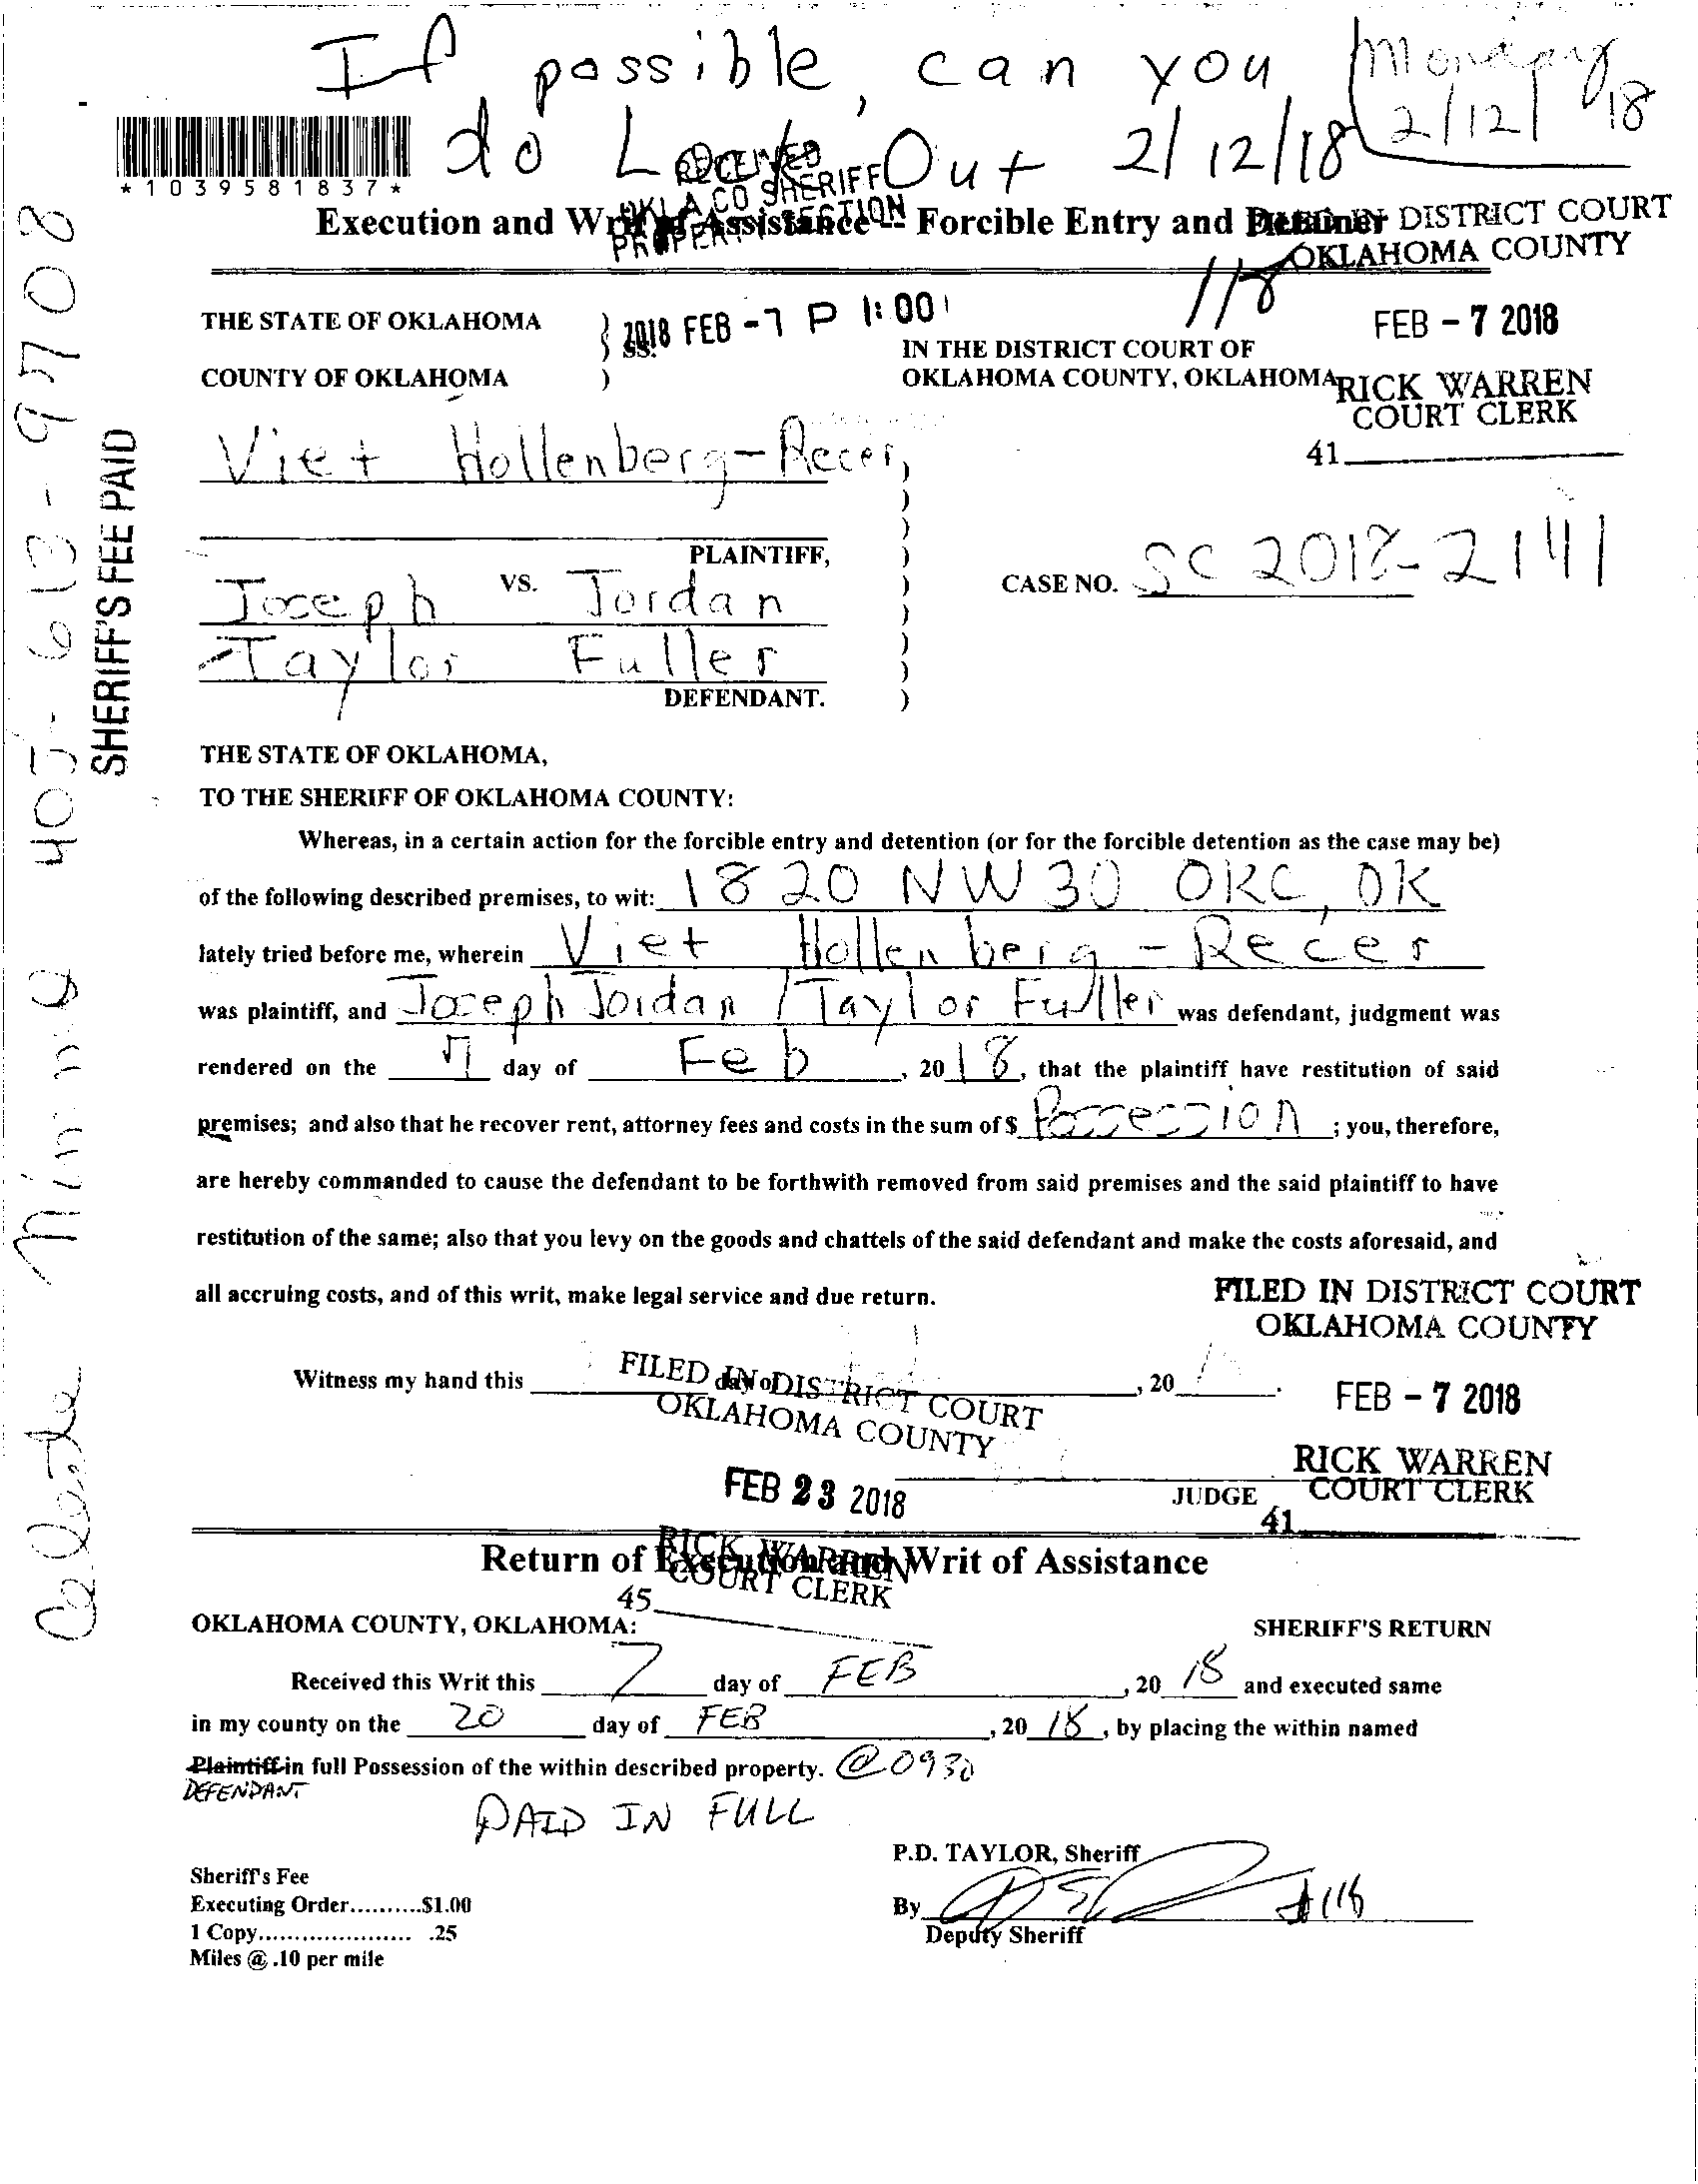 If possible, can you
do Lock Out 2/12/18
Monday
2/12/18
*1039581837*
RECEIVED
OKLA CO SHERIFF
PROPERTY SECTION
Execution and Writ of Assistance -- Forcible Entry and Detainer
FILED IN DISTRICT COURT
OKLAHOMA COUNTY
118
THE STATE OF OKLAHOMA )
2018 FEB -7 P 1:00
) SS.
FEB - 7 2018
IN THE DISTRICT COURT OF
COUNTY OF OKLAHOMA )
OKLAHOMA COUNTY, OKLAHOMA
RICK WARREN
COURT CLERK
41
Viet Hollenberg-Recer,
PLAINTIFF,
VS.
CASE NO. SC 2018-2141
Joseph Jordan
Taylor Fuller
DEFENDANT.
THE STATE OF OKLAHOMA,
TO THE SHERIFF OF OKLAHOMA COUNTY:
Whereas, in a certain action for the forcible entry and detention (or for the forcible detention as the case may be)
of the following described premises, to wit: 1820 NW 30 OKC, OK
lately tried before me, wherein Viet Hollenberg-Recer
was plaintiff, and Joseph Jordan / Taylor Fuller was defendant, judgment was
rendered on the 7 day of Feb, 2018, that the plaintiff have restitution of said
premises; and also that he recover rent, attorney fees and costs in the sum of $ Possession ; you, therefore,
are hereby commanded to cause the defendant to be forthwith removed from said premises and the said plaintiff to have
restitution of the same; also that you levy on the goods and chattels of the said defendant and make the costs aforesaid, and
all accruing costs, and of this writ, make legal service and due return.
FILED IN DISTRICT COURT
OKLAHOMA COUNTY
Witness my hand this day of , 20 .
FEB - 7 2018
FILED IN DISTRICT COURT
OKLAHOMA COUNTY
FEB 23 2018
RICK WARREN
COURT CLERK
JUDGE
41
RICK WARREN
COURT CLERK
45
Return of Execution and Writ of Assistance
OKLAHOMA COUNTY, OKLAHOMA:
SHERIFF'S RETURN
Received this Writ this 7 day of FEB, 20 18 and executed same
in my county on the 20 day of FEB, 20 18, by placing the within named
Plaintiff in full Possession of the within described property. @ 0930
DEFENDANT
PAID IN FULL
P.D. TAYLOR, Sheriff
Sheriff's Fee
Executing Order..........$1.00
By #118
1 Copy..................... .25
Deputy Sheriff
Miles @ .10 per mile
SHERIFF'S FEE PAID
405-613-9708